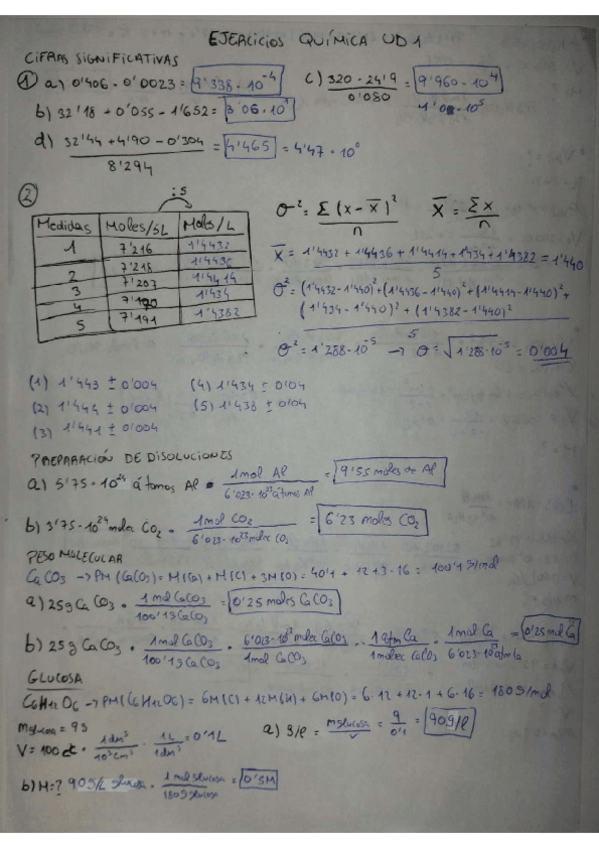 EJERCICIOS QUÍMICA UD1
CIFRAS SIGNIFICATIVAS
① a) 0'406 · 0'0023 = 9'338 · 10⁻⁴ c) 320 · 24'9 / 0'080 = 9'960 · 10⁴
10⁵
b) 32'18 + 0'055 - 1'652 = 3'06 · 10¹
d) 32'44 + 4'90 - 0'304 / 8'294 = 4'465 = 4'47 · 10⁰
② : 5
σ² = Σ (x - x̄)² / n x̄ = Σx / n
Medidas Moles/5L Moles/L
1 7'216 1'4432
2 7'218 1'4436
3 7'207 1'4414
4 7'190 1'434
5 7'191 1'4382
x̄ = 1'4432 + 1'4436 + 1'4414 + 1'434 + 1'4382 / 5 = 1'440
σ² = (1'4432 - 1'440)² + (1'4436 - 1'440)² + (1'4414 - 1'440)² +
(1'434 - 1'440)² + (1'4382 - 1'440)²
5
σ² = 1'288 · 10⁻⁵ → σ = √1'288·10⁻⁵ = 0'004
(1) 1'443 ± 0'004 (4) 1'434 ± 0'04
(2) 1'444 ± 0'004 (5) 1'438 ± 0'04
(3) 1'441 ± 0'004
PREPARACIÓN DE DISOLUCIONES
a) 5'75 · 10²⁴ átomos Al · 1 mol Al / 6'023 · 10²³ átomos Al = 9'55 moles de Al
b) 3'75 · 10²⁴ molec CO₂ · 1 mol CO₂ / 6'023 · 10²³ molec CO₂ = 6'23 moles CO₂
PESO MOLECULAR
CaCO₃ → PM (CaCO₃) = M(Ca) + M(C) + 3M(O) = 40'1 + 12 + 3 · 16 = 100'1 g/mol
a) 25g CaCO₃ · 1 mol CaCO₃ / 100'1g CaCO₃ = 0'25 moles CaCO₃
b) 25g CaCO₃ · 1 mol CaCO₃ / 100'1g CaCO₃ · 6'023 · 10²³ molec CaCO₃ / 1 mol CaCO₃ · 1 atm Ca / 1 molec CaCO₃ · 1 mol Ca / 6'023 · 10²³ atm Ca = 0'25 mol Ca
GLUCOSA
C₆H₁₂O₆ → PM (C₆H₁₂O₆) = 6M(C) + 12M(H) + 6M(O) = 6 · 12 + 12 · 1 + 6 · 16 = 180 g/mol
m glucosa = 9g
V = 100 · 1 dm³ / 10³ cm³ · 1L / 1 dm³ = 0'1L a) g/l = m glucosa / V = 9 / 0'1 = 90 g/l
b) M=? 90g/L glucosa · 1 mol glucosa / 180g glucosa = 0'5M